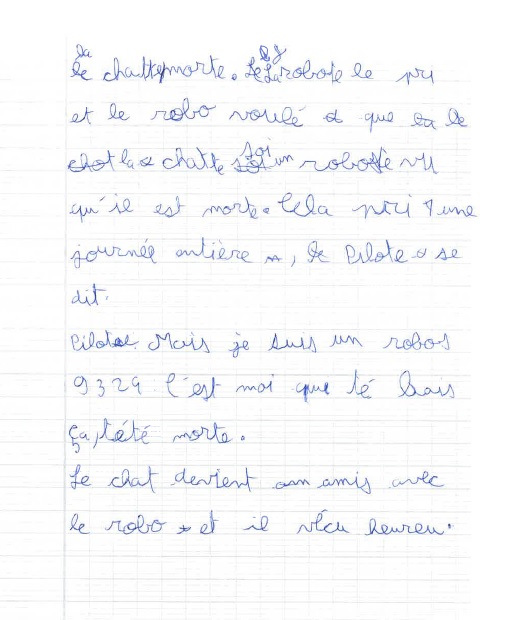 la chatte morte. Le robote le pri
et le robo voulé que la
chatte soi un robot vu
qu'il est morte. Cela pri 1 une
journée entière, le Pilote se
dit.
Pilote. Mais je suis un robos
9329 C'est moi que té
ça, t'été morte.
Le chat devient amis avec
le robo et il vécu heureu.